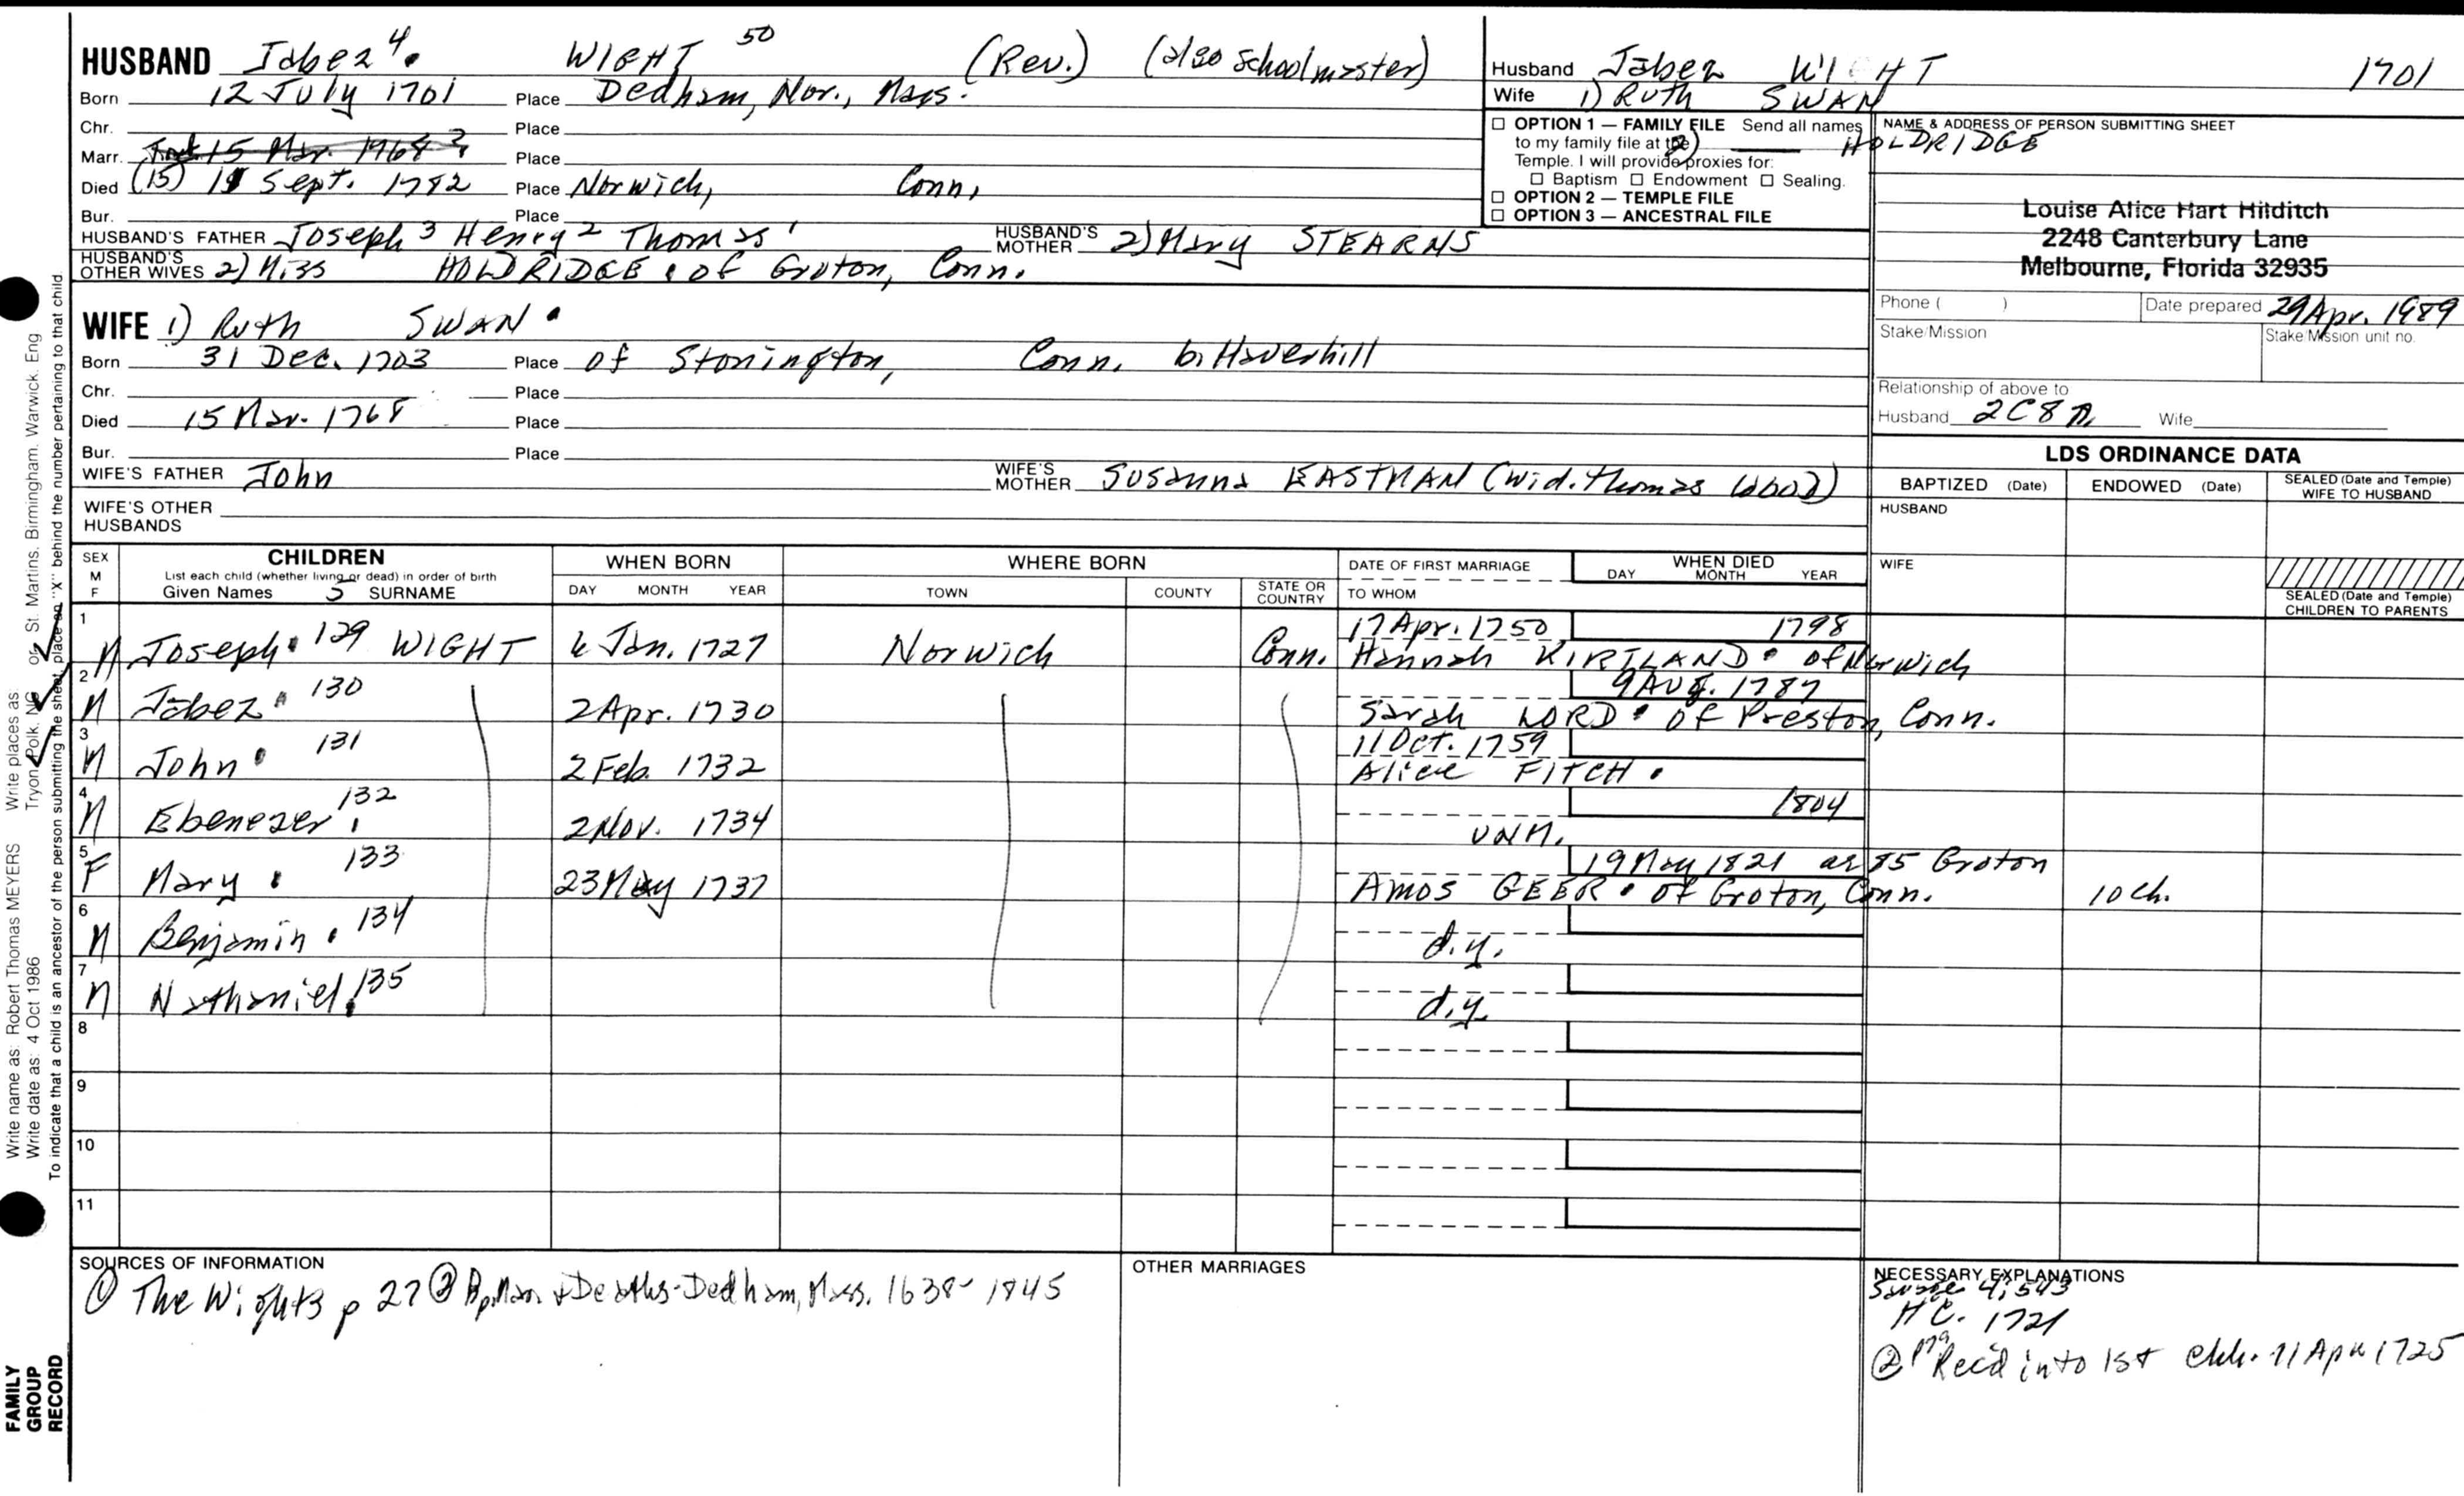 HUSBAND Jabez 4. WIGHT 50 (Rev.) (also schoolmaster)
Born 12 July 1701 Place Dedham, Nor., Mass.
Chr. Place
Marr. Place
Died (15) Sept. 1782 Place Norwich, Conn.
Bur. Place
HUSBAND'S FATHER Joseph 3 Henry 2 Thomas 1 HUSBAND'S MOTHER 2) Mary STEARNS
HUSBAND'S OTHER WIVES 2) Miss HOLDRIDGE . of Groton, Conn.
WIFE 1) Ruth SWAN .
Born 31 Dec. 1703 Place of Stonington, Conn. b. Haverhill
Chr. Place
Died 15 Mar. 1768 Place
Bur. Place
WIFE'S FATHER John WIFE'S MOTHER Susanna EASTMAN (wid. Thomas Wood)
WIFE'S OTHER HUSBANDS
Husband Jabez WIGHT 1701
Wife 1) Ruth SWAN
2) HOLDRIDGE
☐ OPTION 1 — FAMILY FILE Send all names
to my family file at the
Temple. I will provide proxies for:
☐ Baptism ☐ Endowment ☐ Sealing.
☐ OPTION 2 — TEMPLE FILE
☐ OPTION 3 — ANCESTRAL FILE
NAME & ADDRESS OF PERSON SUBMITTING SHEET
Louise Alice Hart Hilditch
2248 Canterbury Lane
Melbourne, Florida 32935
Phone ( ) Date prepared 29 Apr. 1989
Stake/Mission Stake/Mission unit no.
Relationship of above to
Husband 2C8R Wife
LDS ORDINANCE DATA
BAPTIZED (Date) ENDOWED (Date) SEALED (Date and Temple) WIFE TO HUSBAND
HUSBAND
WIFE
SEALED (Date and Temple) CHILDREN TO PARENTS
SEX M F
CHILDREN
List each child (whether living or dead) in order of birth
Given Names SURNAME
WHEN BORN
DAY MONTH YEAR
WHERE BORN
TOWN COUNTY STATE OR COUNTRY
DATE OF FIRST MARRIAGE
TO WHOM
WHEN DIED
DAY MONTH YEAR
1 M Joseph . 129 WIGHT 6 Jan. 1727 Norwich Conn. 17 Apr. 1750 1798
Hannah KIRTLAND . of Norwich
2 M Jabez . 130 2 Apr. 1730 9 Aug. 1787
Sarah LORD . of Preston, Conn.
3 M John . 131 2 Feb. 1732 11 Oct. 1759
Alice FITCH .
4 M Ebenezer . 132 2 Nov. 1734 1804
UNM.
5 F Mary . 133 23 May 1737 19 May 1821 ae 85 Groton
Amos GEER . of Groton, Conn. 10 ch.
6 M Benjamin . 134 d.y.
7 M Nathaniel . 135 d.y.
8
9
10
11
SOURCES OF INFORMATION
① The Wights p 27 ② Bp, Marr. & Deaths-Dedham, Mass. 1638-1845
OTHER MARRIAGES
NECESSARY EXPLANATIONS
Savage 4:543
H C. 1721
② p79 Rec'd into 1st chh. 11 Apr 1725
Write name as: Robert Thomas MEYERS Write places as Tryon, Polk, NC or St. Martins, Birmingham, Warwick, Eng
Write date as: 4 Oct 1986
To indicate that a child is an ancestor of the person submitting the sheet, place an "X" behind the number pertaining to that child.
FAMILY
GROUP
RECORD